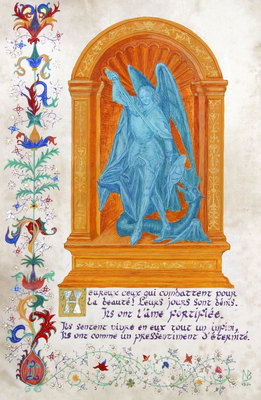 Heureux ceux qui combattent pour
la beauté! Leurs jours sont bénis.
Ils ont l'âme fortifiée.
Ils sentent vivre en eux tout un infini,
Ils ont comme un pressentiment d'éternité.